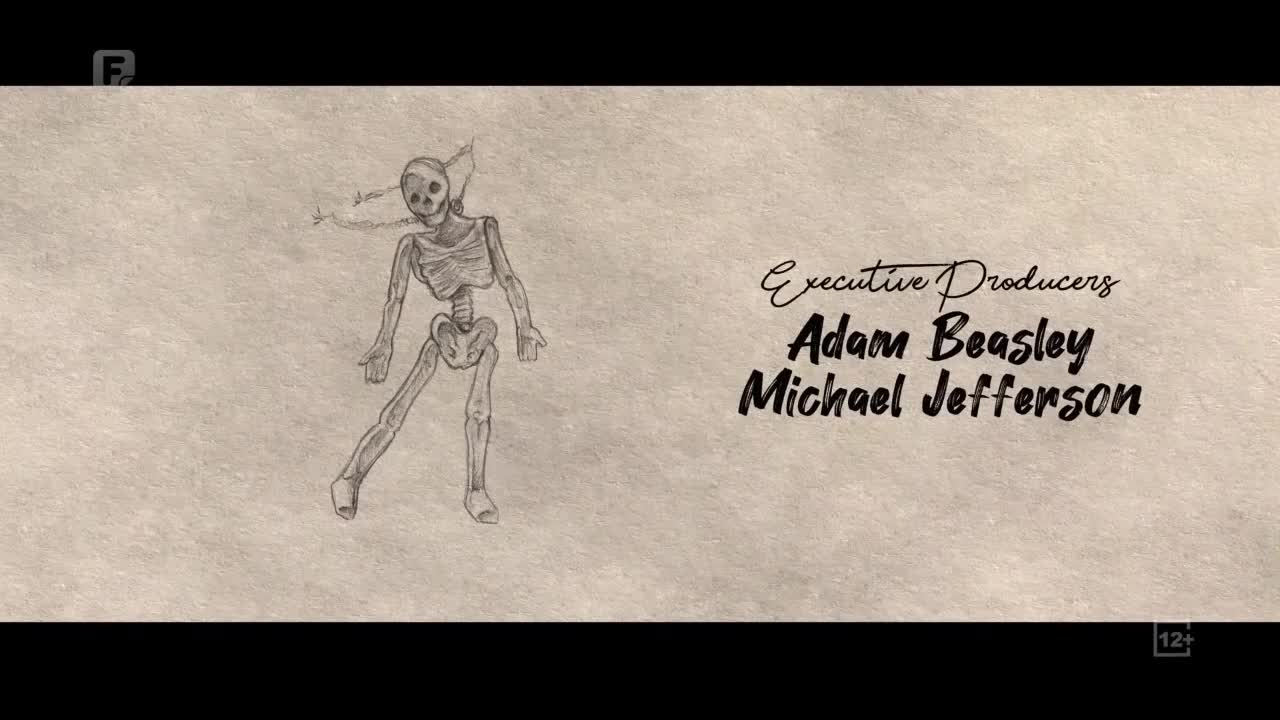 F
Executive Producers
Adam Beasley
Michael Jefferson
12+